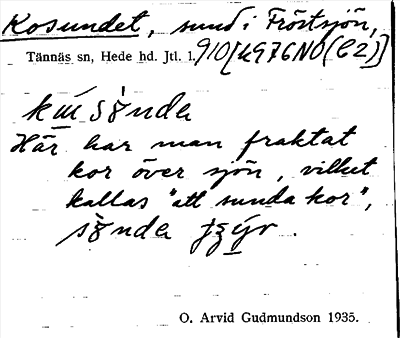 Kosundet, sund i Fröstsjön,
Tännäs sn, Hede hd. Jtl. 1. 910[49G76NO(C2)]
Här har man fraktat
kor över sjön, vilket
kallas "att sunda kor",
O. Arvid Gudmundson 1935.